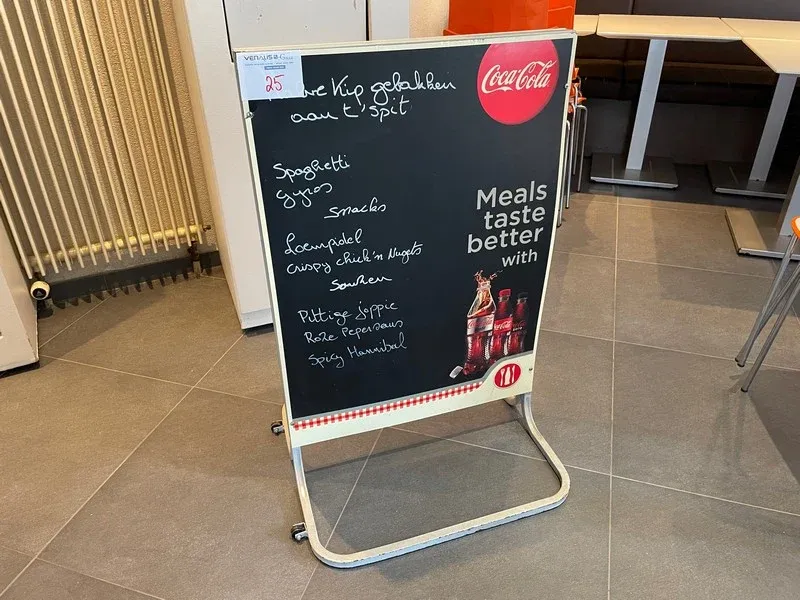 VENALIS
25
Kip gebakken
aan t' spit
Coca-Cola
Spaghetti
gyros
snacks
Loempidel
crispy chick'n Nugets
Sauzen
Pittige joppie
Roze Pepersaus
Spicy Hannibal
Meals
taste
better
with